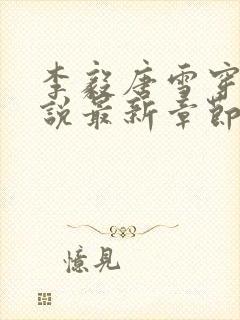 李毅唐雪穿
说最新章节
憶見